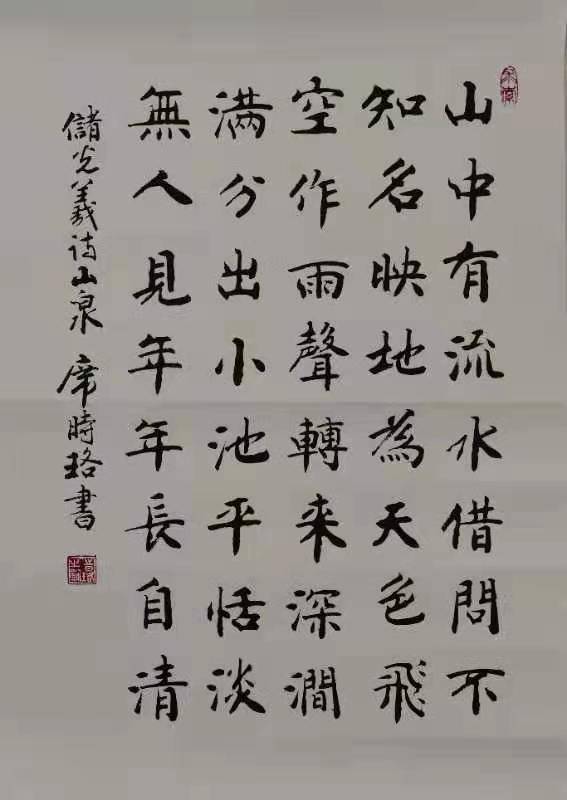 山中有流水借問不
知名映地為天色飛
空作雨聲轉来深澗
满分出小池平恬淡
無人見年年長自清
儲光羲诗山泉 席時珞書